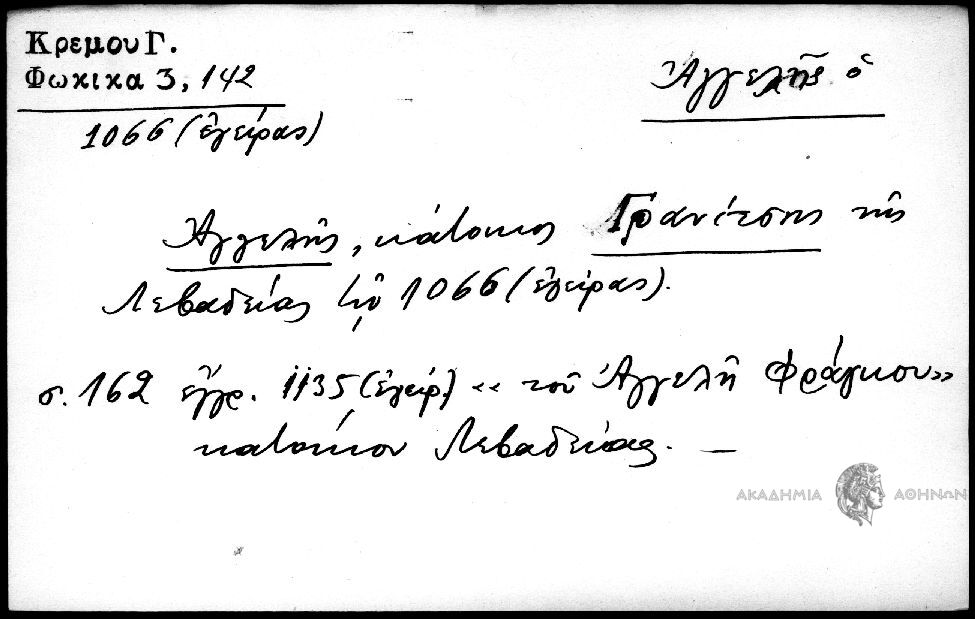 Κρεμου Γ.
Φωκικα 3, 142
Ἀγγελῆς ὁ
1066 (ἐγείρας)
Ἀγγελῆς, κάτοικος Γρανίτσης τῆς
Λεβαδείας τῷ 1066 (ἐγείρας).
σ. 162 ἔγγρ. 1135 (ἐγείρ.) «τοῦ Ἀγγελῆ Φράγκου»
κατοίκου Λεβαδείας. —
ΑΚΑΔΗΜΙΑ ΑΘΗΝΩΝ